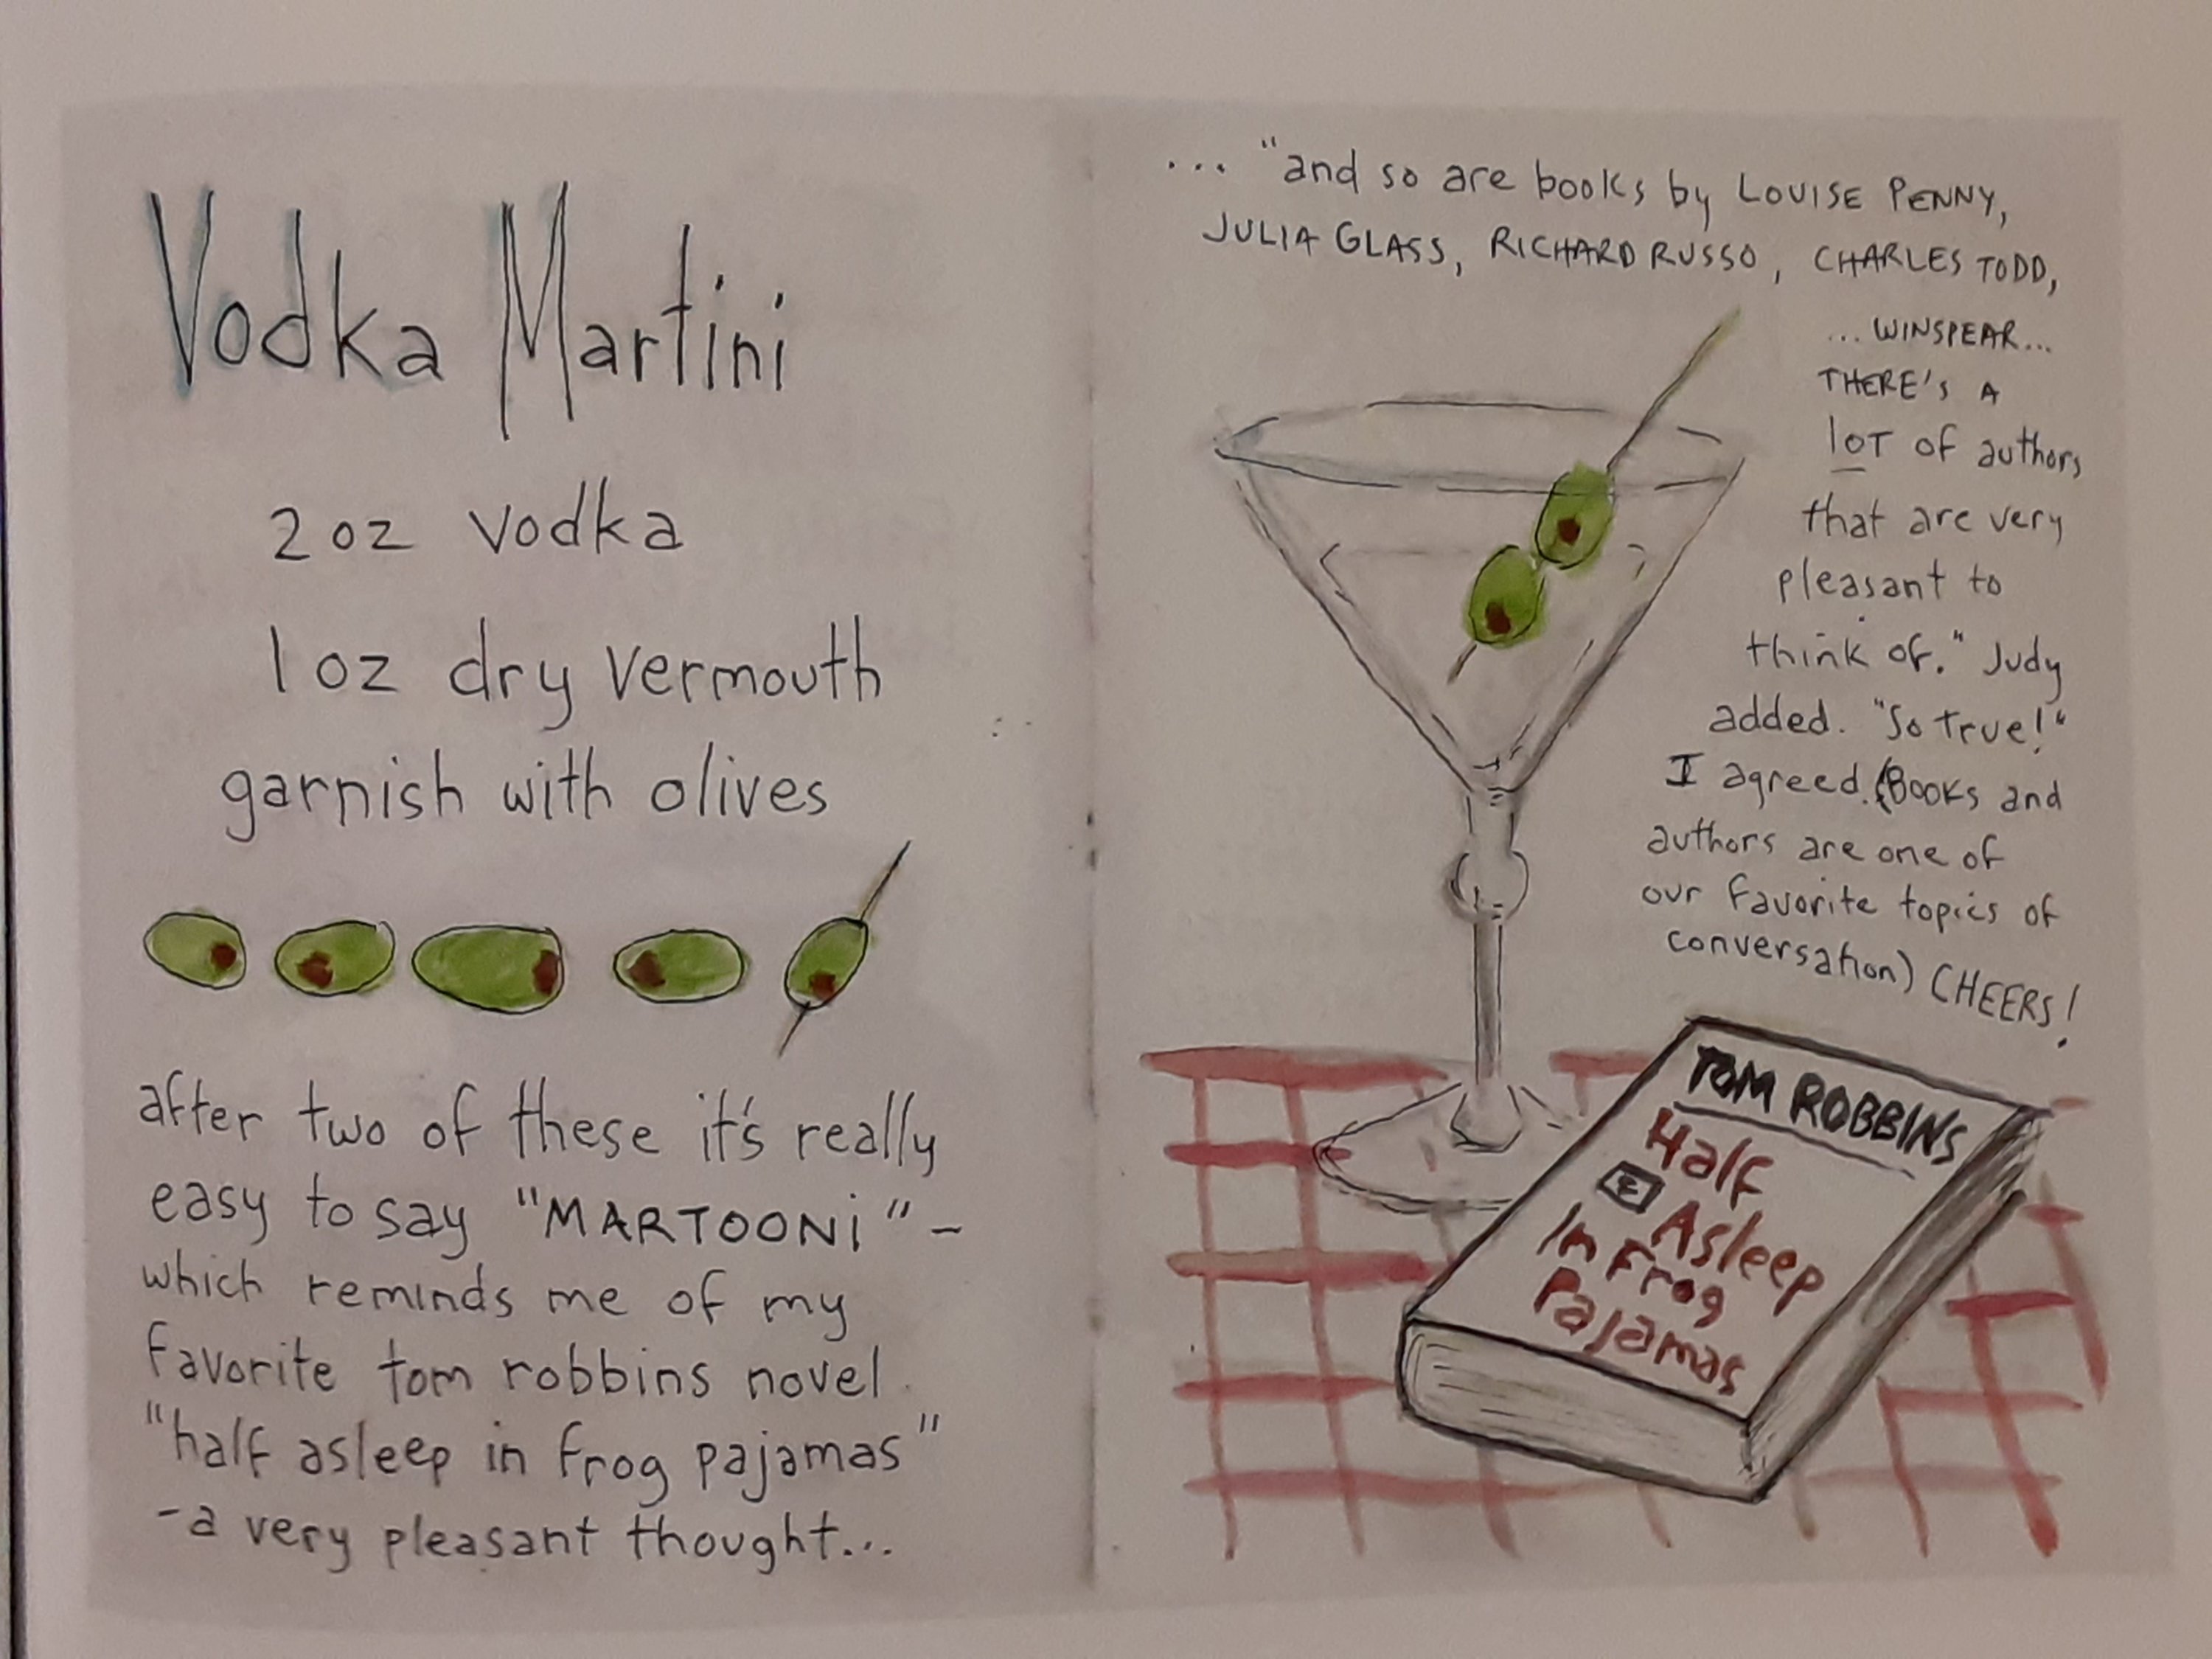 Vodka Martini
2 oz vodka
1 oz dry vermouth
garnish with olives
after two of these it's really
easy to say "MARTOONi" -
which reminds me of my
favorite tom robbins novel
"half asleep in frog pajamas"
-a very pleasant thought...
... "and so are books by LOUISE PENNY,
JULIA GLASS, RICHARD RUSSO, CHARLES TODD,
...WINSPEAR...
THERE'S A
lOT of authors
that are very
pleasant to
think of." Judy
added. "So true!"
I agreed. (Books and
authors are one of
our favorite topics of
conversation) CHEERS!
TOM ROBBINS
Half
Asleep
In Frog
Pajamas